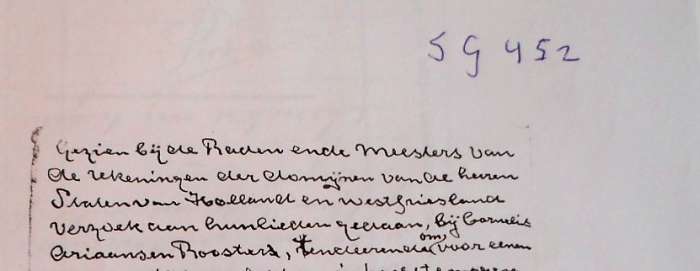 SG 452
Gezien bij de Raden ende Meesters van
de rekeningen der domijnen van de heeren
Staten van Holland en Westfriesland
verzoek aan hunlieden gedaan, bij Cornelis
Ariaansen Roosters, tendeerende om voor eenen